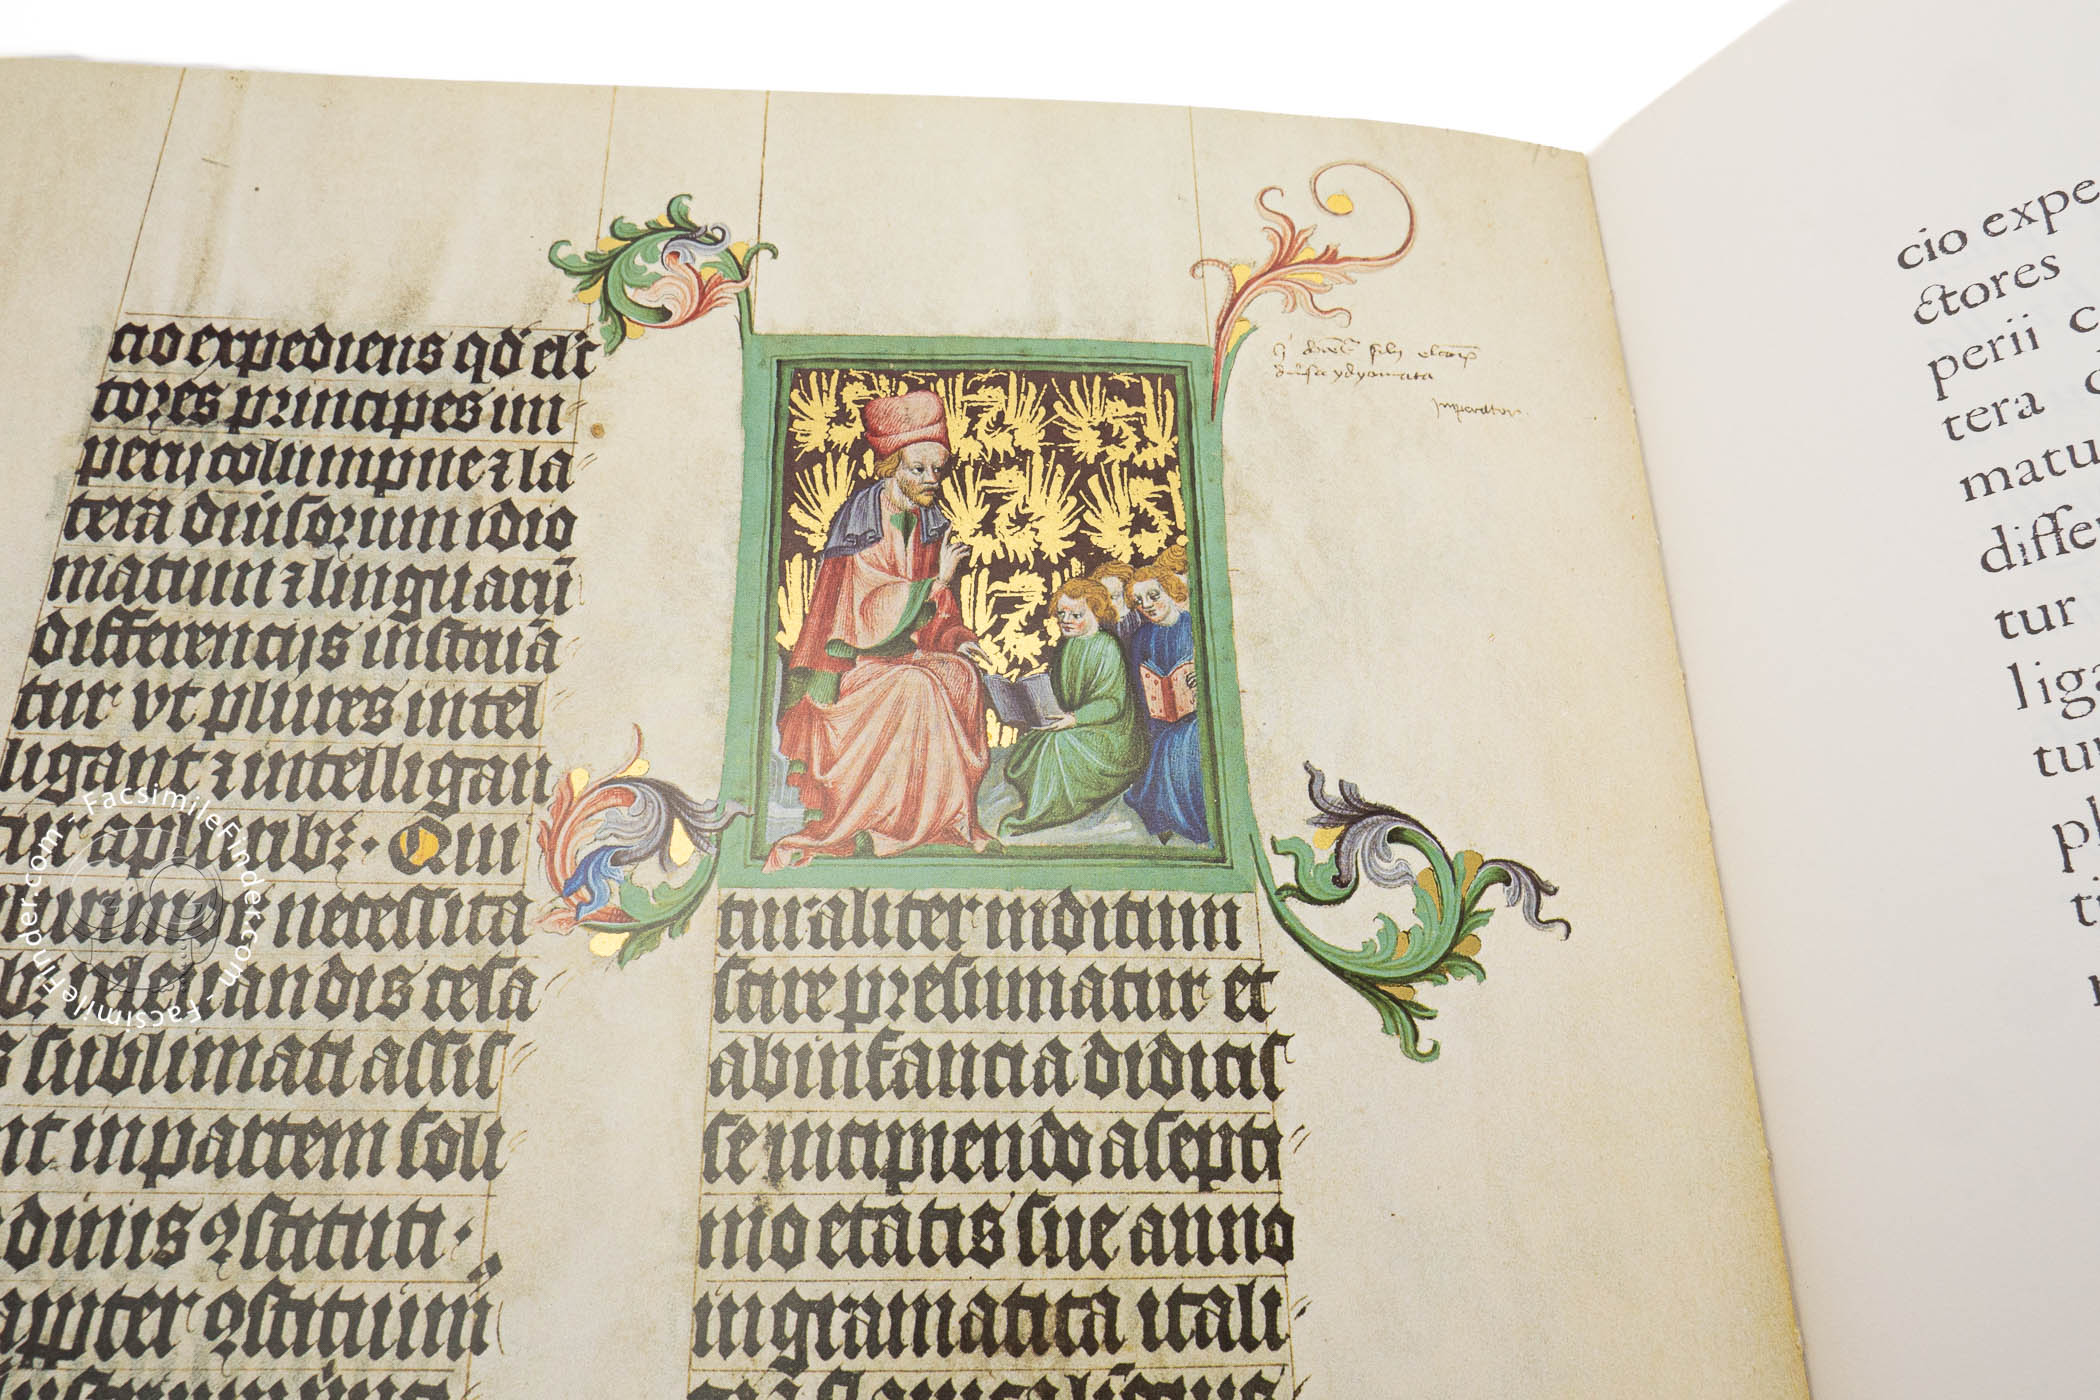 cio expediens qd elec
tores principes im
perii columpne et la
tera diuisorum idio
matum et linguarū
differencijs instruā
tur vt plures intel
ligant et intelligan
tur a pluribz. Qui
necessita
releuandis cesa
sublimati assis
nt in partem soli
dinis 9stituti.
9stitium
turaliter inditum
scire presumatur et
ab infancia didicis
se incipiendo a septi
mo etatis sue anno
in gramatica itali
ca
diuersa ydyomata
imperator
cio expe
ctores
perii c
tera
matu
diffe
tur
liga
tu
FacsimileFinder.com - FacsimileFinder.com - FacsimileFinder.com